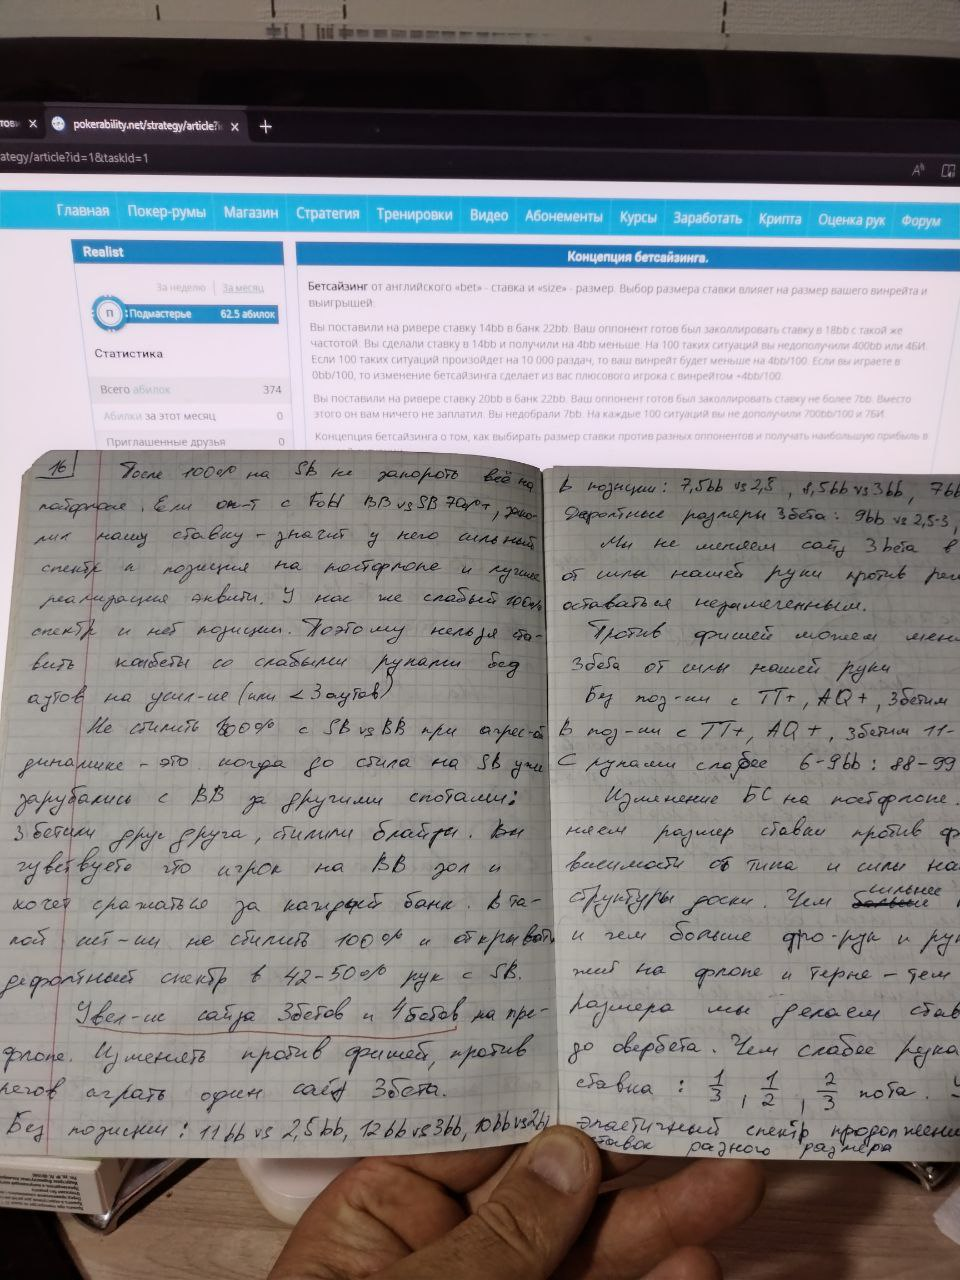 pokerability.net/strategy/article?i
ategy/article?id=1&taskId=1
Главная Покер-румы Магазин Стратегия Тренировки Видео Абонементы Курсы Заработать Крипта Оценка рук Форум
Realist
За неделю За месяц
П Подмастерье 62.5 абилок
Статистика
Всего абилок 374
Абилки за этот месяц 0
Приглашенные друзья 0
Концепция бетсайзинга.
Бетсайзинг от английского «bet» - ставка и «size» - размер. Выбор размера ставки влияет на размер вашего винрейта и
выигрышей:
Вы поставили на ривере ставку 14bb в банк 22bb. Ваш оппонент готов был заколлировать ставку в 18bb с такой же
частотой. Вы сделали ставку в 14bb и получили на 4bb меньше. На 100 таких ситуаций вы недополучили 400bb или 4БИ.
Если 100 таких ситуаций произойдет на 10 000 раздач, то ваш винрейт будет меньше на 4bb/100. Если вы играете в
0bb/100, то изменение бетсайзинга сделает из вас плюсового игрока с винрейтом +4bb/100.
Вы поставили на ривере ставку 20bb в банк 22bb. Ваш оппонент готов был заколлировать ставку не более 7bb. Вместо
этого он вам ничего не заплатил. Вы недобрали 7bb. На каждые 100 ситуаций вы не дополучили 700bb/100 и 7БИ.
Концепция бетсайзинга о том, как выбирать размер ставки против разных оппонентов и получать наибольшую прибыль в
16 После 100% на SB не запороть всё на
постфлопе. Если он-т с FoldBB vs SB 70%+, зако-
лил нашу ставку - значит у него сильный
спектр и позиция на постфлопе и лучшее
реализация эквити. У нас же слабый 100%
спектр и нет позиции. Поэтому нельзя ста-
вить конбеты со слабыми руками без
аутов на усил-ие (или <3 аутов)
Не стилить 100% с SB vs BB при агрес-ой
динамике - это когда до стила на SB уже
зарубались с BB за другими спотами:
3бетили друг друга, стилили блайнды. Вы
чувствуете что игрок на BB зол и
хочет сражаться за каждый банк. В та-
кой сит-ии не стилить 100% и открывать
дефолтный спектр в 42-50% рук с SB.
Увел-ие сайза 3бетов и 4бетов на пре-
флопе. Изменять против фишей, против
регов играть один сайз 3бета.
Без позиции: 11bb vs 2,5bb, 12bb vs 3bb, 10bb vs 2bb
В позиции: 7,5bb vs 2,5, 8,5bb vs 3bb, 7bb
Дефолтные размеры 3бета: 9bb vs 2,5-3,
Мы не меняем сайз 3beта в
от силы нашей руки против рег
оставаться незамеченным.
Против фишей можем мен
3бета от силы нашей руки
Без поз-ии с TT+, AQ+, 3бетим
В поз-ии с TT+, AQ+, 3бетим 11-
С руками слабее 6-9bb: 88-99
Изменение БС на постфлопе.
няем размер ставки против ф
висимости от типа и силы на
структуры доски. Чем сильнее
и чем больше дро-рук и рук
жей на флопе и терне - тем
размера мы делаем став
до овербета. Чем слабее рука
ставка: 1/3, 1/2, 2/3 пота.
эластичный спектр продолжени
ставок разного размера